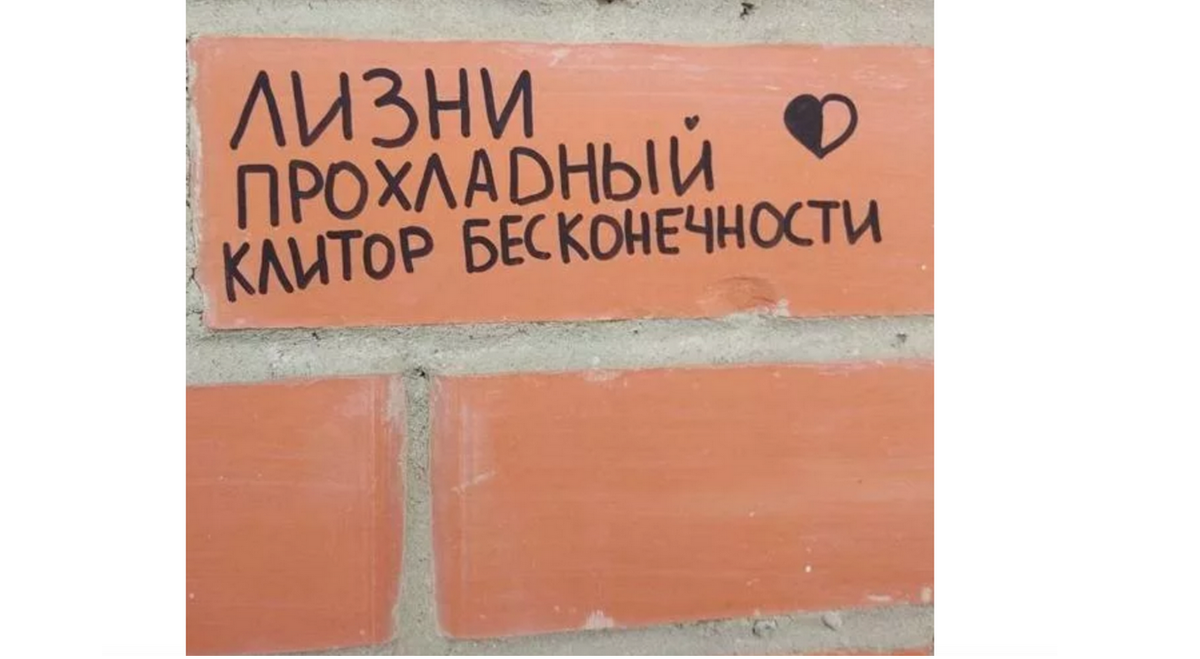 ЛИЗНИ
ПРОХЛАДНЫЙ
КЛИТОР БЕСКОНЕЧНОСТИ